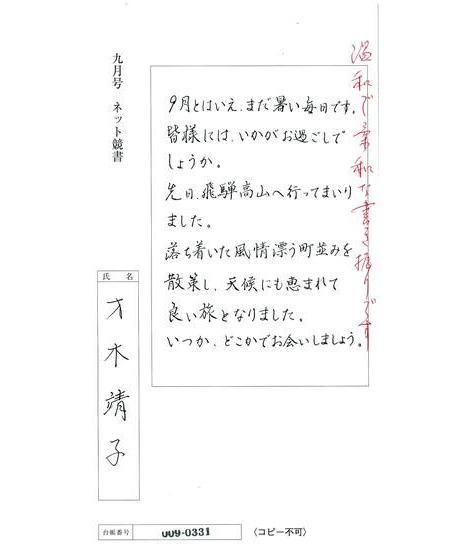 九月号 ネット競書
9月とはいえ、まだ暑い毎日です。
皆様には、いかがお過ごしで
しょうか。
先日、飛騨高山へ行ってまいり
ました。
落ち着いた風情漂う町並みを
散策し、天候にも恵まれて
良い旅となりました。
いつか、どこかでお会いしましょう。
温和で柔和な書き振りです
氏 名
才木靖子
台帳番号
009-0331
〈コピー不可〉